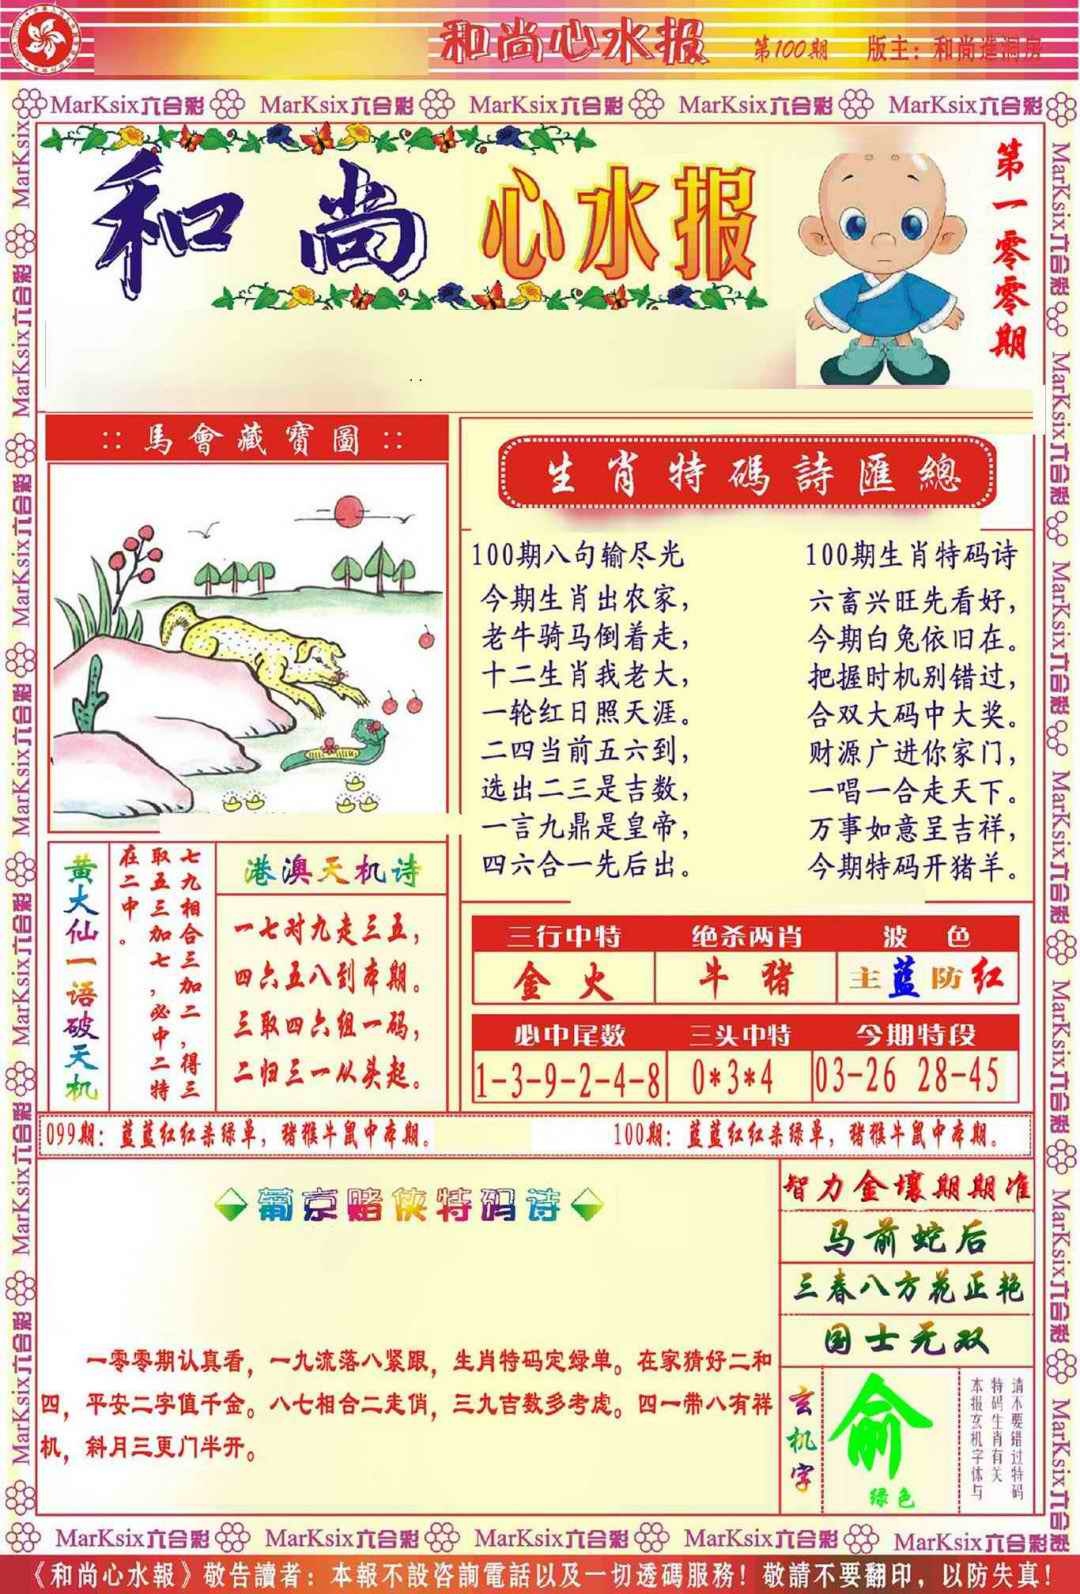 和尚心水报 第100期 版主：和尚進洞房
MarKsix六合彩 MarKsix六合彩 MarKsix六合彩 MarKsix六合彩 MarKsix六合彩
和尚心水报
第一零零期
::馬會藏寶圖::
生肖特碼詩匯總
100期八句输尽光
今期生肖出农家，
老牛骑马倒着走，
十二生肖我老大，
一轮红日照天涯。
二四当前五六到，
选出二三是吉数，
一言九鼎是皇帝，
四六合一先后出。
100期生肖特码诗
六畜兴旺先看好，
今期白兔依旧在。
把握时机别错过，
合双大码中大奖。
财源广进你家门，
一唱一合走天下。
万事如意呈吉祥，
今期特码开猪羊。
黄大仙一语破天机
七九相合三加二，得三
取五三加七，必中二特
在二中。
港澳天机诗
一七对九走三五，
四六五八到本期。
三取四六组一码，
二归三一从头起。
三行中特 绝杀两肖 波色
金火 牛猪 主蓝防红
必中尾数 三头中特 今期特段
1-3-9-2-4-8 0*3*4 03-26 28-45
099期：蓝蓝红红杀绿单，猪猴牛鼠中本期。 100期：蓝蓝红红杀绿单，猪猴牛鼠中本期。
葡京赌侠特码诗
一零零期认真看，一九流落八紧跟，生肖特码定绿单。在家猜好二和
四，平安二字值千金。八七相合二走俏，三九吉数多考虑。四一带八有祥
机，斜月三更门半开。
智力金壤期期准
马前蛇后
三春八方花正艳
国士无双
玄机字
俞
绿色
请不要错过特码
特码生肖有关
本报玄机字体与
MarKsix六合彩 MarKsix六合彩 MarKsix六合彩 MarKsix六合彩 MarKsix六合彩
《和尚心水報》敬告讀者：本報不設咨詢電話以及一切透碼服務！敬請不要翻印，以防失真！